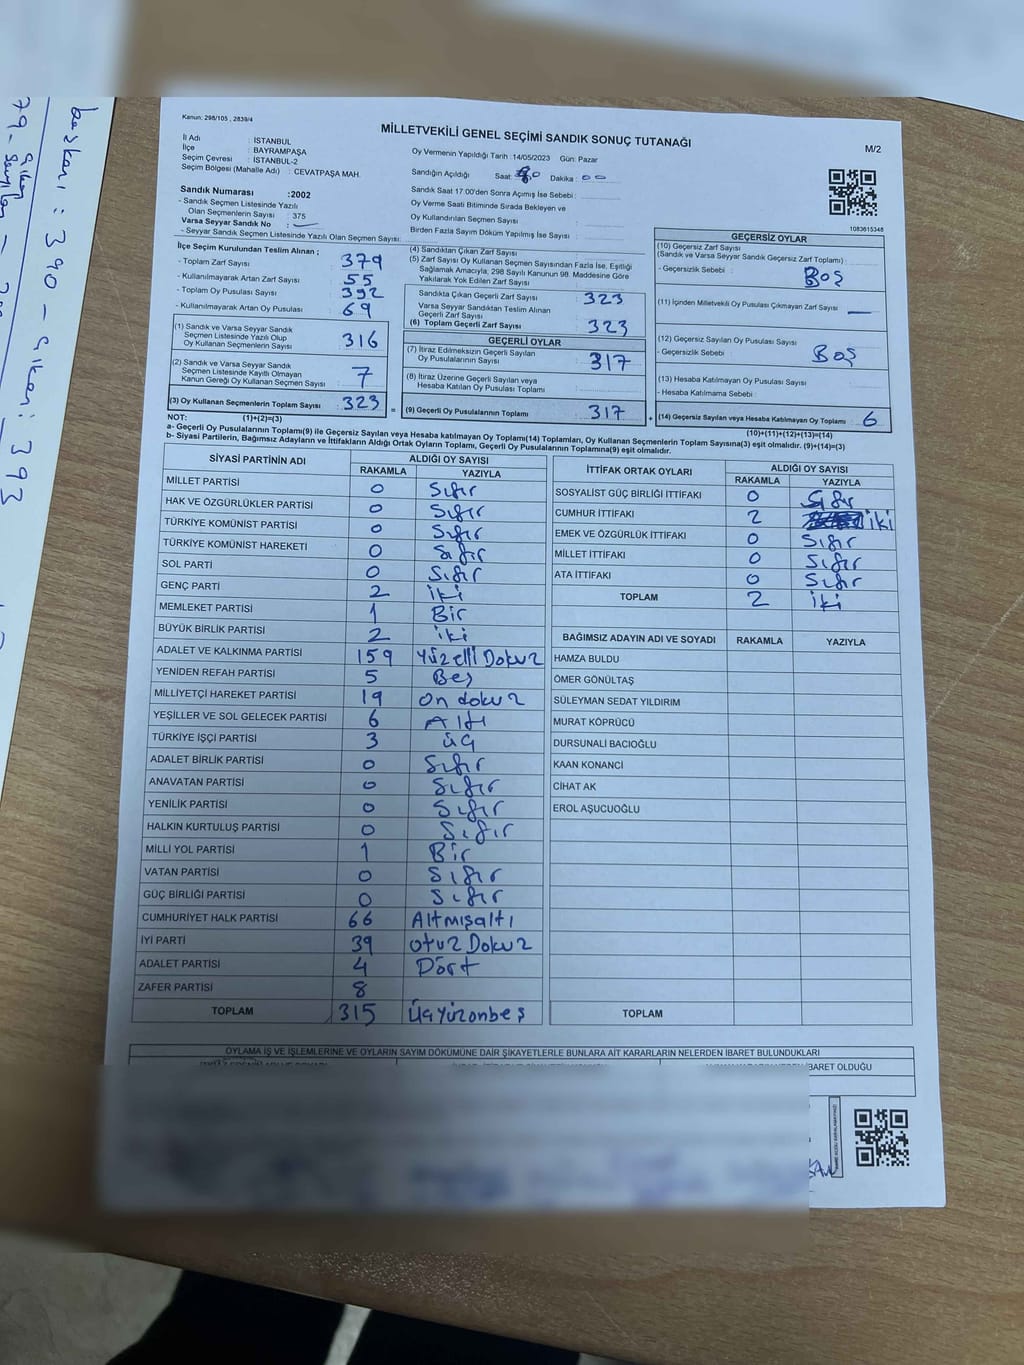 Kanun: 298/105 , 2839/4
MİLLETVEKİLİ GENEL SEÇİMİ SANDIK SONUÇ TUTANAĞI
M/2
İl Adı : İSTANBUL
İlçe : BAYRAMPAŞA
Seçim Çevresi : İSTANBUL-2
Seçim Bölgesi (Mahalle Adı) : CEVATPAŞA MAH.
Sandık Numarası :2002
- Sandık Seçmen Listesinde Yazılı
Olan Seçmenlerin Sayısı : 375
Varsa Seyyar Sandık No :
- Seyyar Sandık Seçmen Listesinde Yazılı Olan Seçmen Sayısı:
Oy Vermenin Yapıldığı Tarih :14/05/2023 Gün: Pazar
Sandığın Açıldığı Saat: Dakika : 00
Sandık Saat 17.00'den Sonra Açımış İse Sebebi :
Oy Verme Saati Bitiminde Sırada Bekleyen ve
Oy Kullandırılan Seçmen Sayısı :
Birden Fazla Sayım Döküm Yapılmış İse Sayısı :
1083615348
İlçe Seçim Kurulundan Teslim Alınan ;
- Toplam Zarf Sayısı : 379
- Kullanılmayarak Artan Zarf Sayısı : 55
- Toplam Oy Pusulası Sayısı : 392
- Kullanılmayarak Artan Oy Pusulası : 69
(1) Sandık ve Varsa Seyyar Sandık
Seçmen Listesinde Yazılı Olup
Oy Kullanan Seçmenlerin Sayısı : 316
(2) Sandık ve Varsa Seyyar Sandık
Seçmen Listesinde Kayıtlı Olmayan
Kanun Gereği Oy Kullanan Seçmen Sayısı : 7
(3) Oy Kullanan Seçmenlerin Toplam Sayısı : 323
(4) Sandıktan Çıkan Zarf Sayısı :
(5) Zarf Sayısı Oy Kullanan Seçmen Sayısından Fazla İse, Eşitliği
Sağlamak Amacıyla, 298 Sayılı Kanunun 98. Maddesine Göre
Yakılarak Yok Edilen Zarf Sayısı :
Sandıkta Çıkan Geçerli Zarf Sayısı : 323
Varsa Seyyar Sandıktan Teslim Alınan
Geçerli Zarf Sayısı :
(6) Toplam Geçerli Zarf Sayısı : 323
GEÇERLİ OYLAR
(7) İtiraz Edilmeksizin Geçerli Sayılan
Oy Pusulalarının Sayısı : 317
(8) İtiraz Üzerine Geçerli Sayılan veya
Hesaba Katılan Oy Pusulası Toplamı :
= (9) Geçerli Oy Pusulalarının Toplamı : 317
GEÇERSİZ OYLAR
(10) Geçersiz Zarf Sayısı
(Sandık ve Varsa Seyyar Sandık Geçersiz Zarf Toplamı) :
- Geçersizlik Sebebi : Boş
(11) İçinden Milletvekili Oy Pusulası Çıkmayan Zarf Sayısı : —
(12) Geçersiz Sayılan Oy Pusulası Sayısı :
- Geçersizlik Sebebi : Boş
(13) Hesaba Katılmayan Oy Pusulası Sayısı :
- Hesaba Katılmama Sebebi :
+ (14) Geçersiz Sayılan veya Hesaba Katılmayan Oy Toplamı : 6
NOT: (1)+(2)=(3)
(10)+(11)+(12)+(13)=(14)
a- Geçerli Oy Pusulalarının Toplamı(9) ile Geçersiz Sayılan veya Hesaba katılmayan Oy Toplamı(14) Toplamları, Oy Kullanan Seçmenlerin Toplam Sayısına(3) eşit olmalıdır. (9)+(14)=(3)
b- Siyasi Partilerin, Bağımsız Adayların ve İttifakların Aldığı Ortak Oyların Toplamı, Geçerli Oy Pusulalarının Toplamına(9) eşit olmalıdır.
SİYASİ PARTİNİN ADI ALDIĞI OY SAYISI
RAKAMLA YAZIYLA
MİLLET PARTİSİ 0 Sıfır
HAK VE ÖZGÜRLÜKLER PARTİSİ 0 Sıfır
TÜRKİYE KOMÜNİST PARTİSİ 0 Sıfır
TÜRKİYE KOMÜNİST HAREKETİ 0 Sıfır
SOL PARTİ 0 Sıfır
GENÇ PARTİ 2 iki
MEMLEKET PARTİSİ 1 Bir
BÜYÜK BİRLİK PARTİSİ 2 iki
ADALET VE KALKINMA PARTİSİ 159 Yüzelli Dokuz
YENİDEN REFAH PARTİSİ 5 Beş
MİLLİYETÇİ HAREKET PARTİSİ 19 on dokuz
YEŞİLLER VE SOL GELECEK PARTİSİ 6 Altı
TÜRKİYE İŞÇİ PARTİSİ 3 üç
ADALET BİRLİK PARTİSİ 0 Sıfır
ANAVATAN PARTİSİ 0 Sıfır
YENİLİK PARTİSİ 0 Sıfır
HALKIN KURTULUŞ PARTİSİ 0 Sıfır
MİLLİ YOL PARTİSİ 1 Bir
VATAN PARTİSİ 0 Sıfır
GÜÇ BİRLİĞİ PARTİSİ 0 Sıfır
CUMHURİYET HALK PARTİSİ 66 Altmışaltı
İYİ PARTİ 39 otuz Dokuz
ADALET PARTİSİ 4 Dört
ZAFER PARTİSİ 8
TOPLAM 315 Üçyüzonbeş
İTTİFAK ORTAK OYLARI ALDIĞI OY SAYISI
RAKAMLA YAZIYLA
SOSYALİST GÜÇ BİRLİĞİ İTTİFAKI 0 Sıfır
CUMHUR İTTİFAKI 2 iki
EMEK VE ÖZGÜRLÜK İTTİFAKI 0 Sıfır
MİLLET İTTİFAKI 0 Sıfır
ATA İTTİFAKI 0 Sıfır
TOPLAM 2 iki
BAĞIMSIZ ADAYIN ADI VE SOYADI RAKAMLA YAZIYLA
HAMZA BULDU
ÖMER GÖNÜLTAŞ
SÜLEYMAN SEDAT YILDIRIM
MURAT KÖPRÜCÜ
DURSUNALİ BACIOĞLU
KAAN KONANCİ
CİHAT AK
EROL AŞUCUOĞLU
TOPLAM
OYLAMA İŞ VE İŞLEMLERİNE VE OYLARIN SAYIM DÖKÜMÜNE DAİR ŞİKAYETLERLE BUNLARA AİT KARARLARIN NELERDEN İBARET BULUNDUKLARI
BARET OLDUĞU